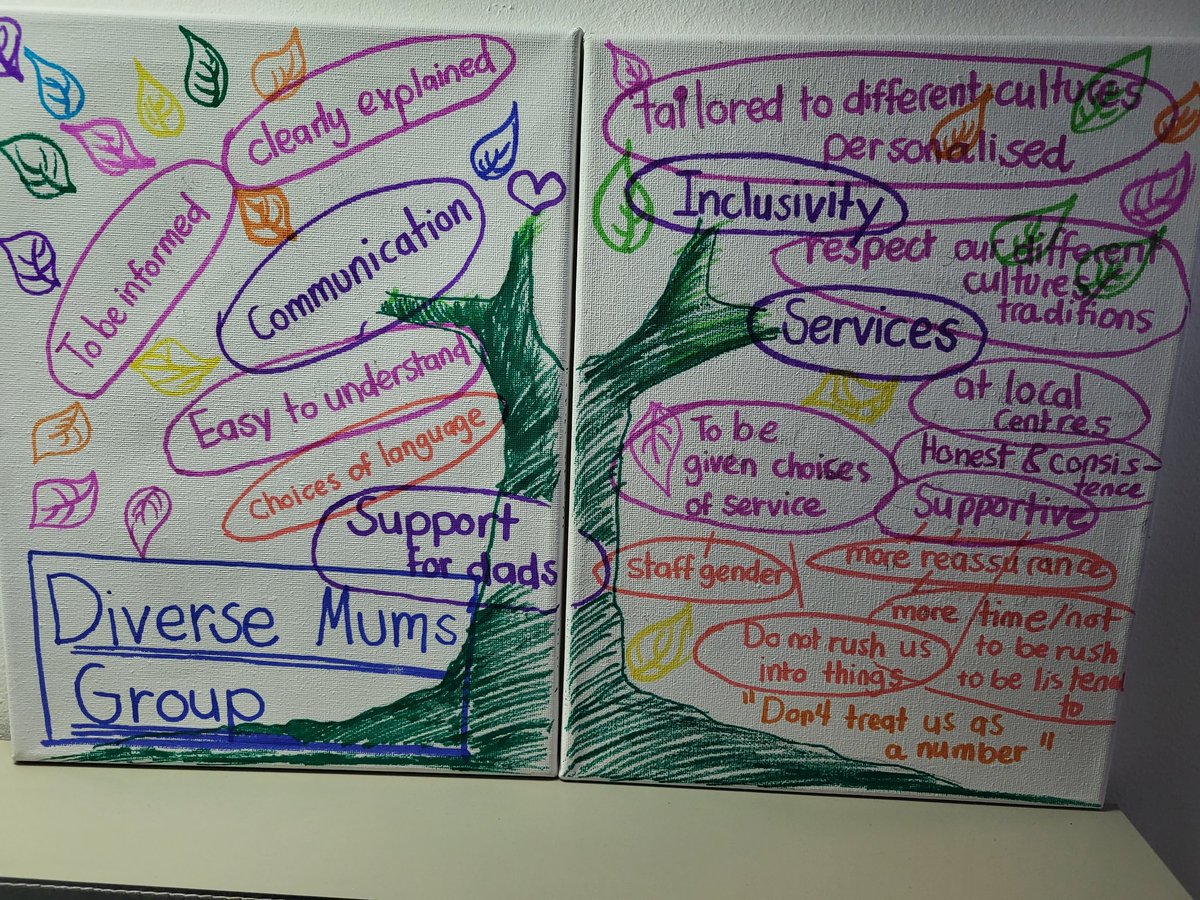 clearly explained
To be informed
Communication
Easy to understand
choices of language
Support
for dads
Diverse Mums
Group
tailored to different cultures
personalised
Inclusivity
respect our different
cultures
traditions
Services
at local
centres
To be
given choises
of service
Honest & consis-
tence
Supportive
staff gender
more reassurance
more time/not
to be rush
to be listened
to
Do not rush us
into things
"Don4 treat us as
a number"